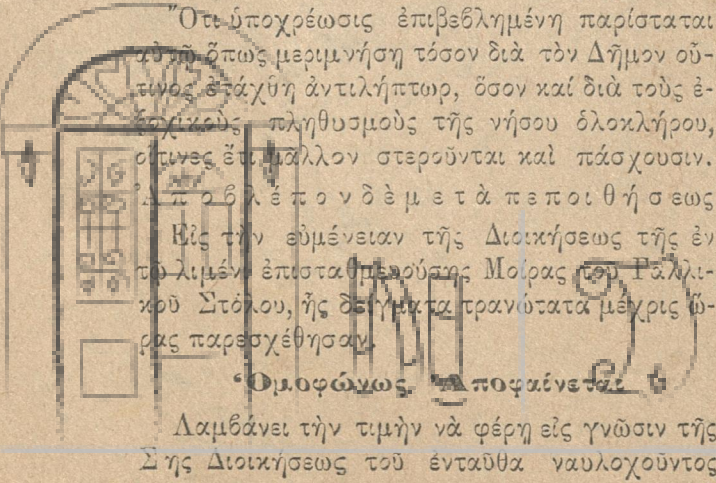 Ὅτι ὑποχρέωσις ἐπιβεβλημένη παρίσταται
αὐτῷ ὅπως μεριμνήση τόσον διὰ τὸν Δῆμον οὗ-
τινος ἐτάχθη ἀντιλήπτωρ, ὅσον καί διὰ τοὺς ἐ-
ξοχικοὺς πληθυσμοὺς τῆς νήσου ὁλοκλήρου,
οἵτινες ἔτι μᾶλλον στεροῦνται καὶ πάσχουσιν.
Ἀποβλέπον δὲ μετὰ πεποιθήσεως
Εἰς τὴν εὐμένειαν τῆς Διοικήσεως τῆς ἐν
τῷ λιμένι ἐπισταθμευούσης Μοίρας τοῦ Γαλλι-
κοῦ Στόλου, ἧς δείγματα τρανώτατα μέχρις ὥ-
ρας παρεσχέθησαν.
Ὁμοφώνως Ἀποφαίνεται
Λαμβάνει τὴν τιμὴν νὰ φέρη εἰς γνῶσιν τῆς
Σης Διοικήσεως τοῦ ἐνταῦθα ναυλοχοῦντος